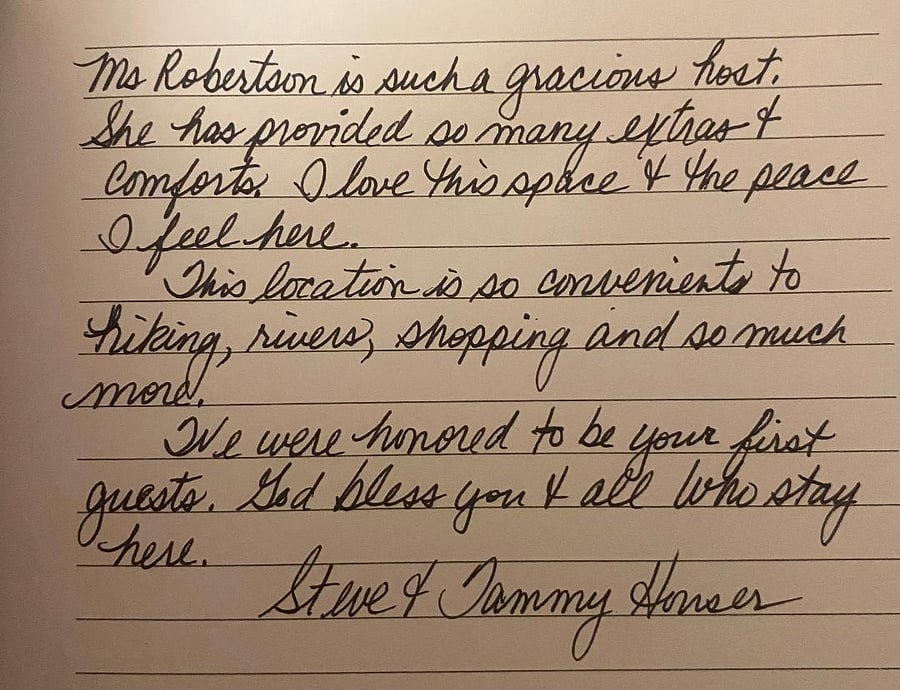 Ms Robertson is such a gracious host.
She has provided so many extras &
comforts. I love this space & the peace
I feel here.
This location is so convenients to
hiking, rivers, shopping and so much
more.
We were honored to be your first
guests. God bless you & all who stay
here.
Steve & Tammy Houser